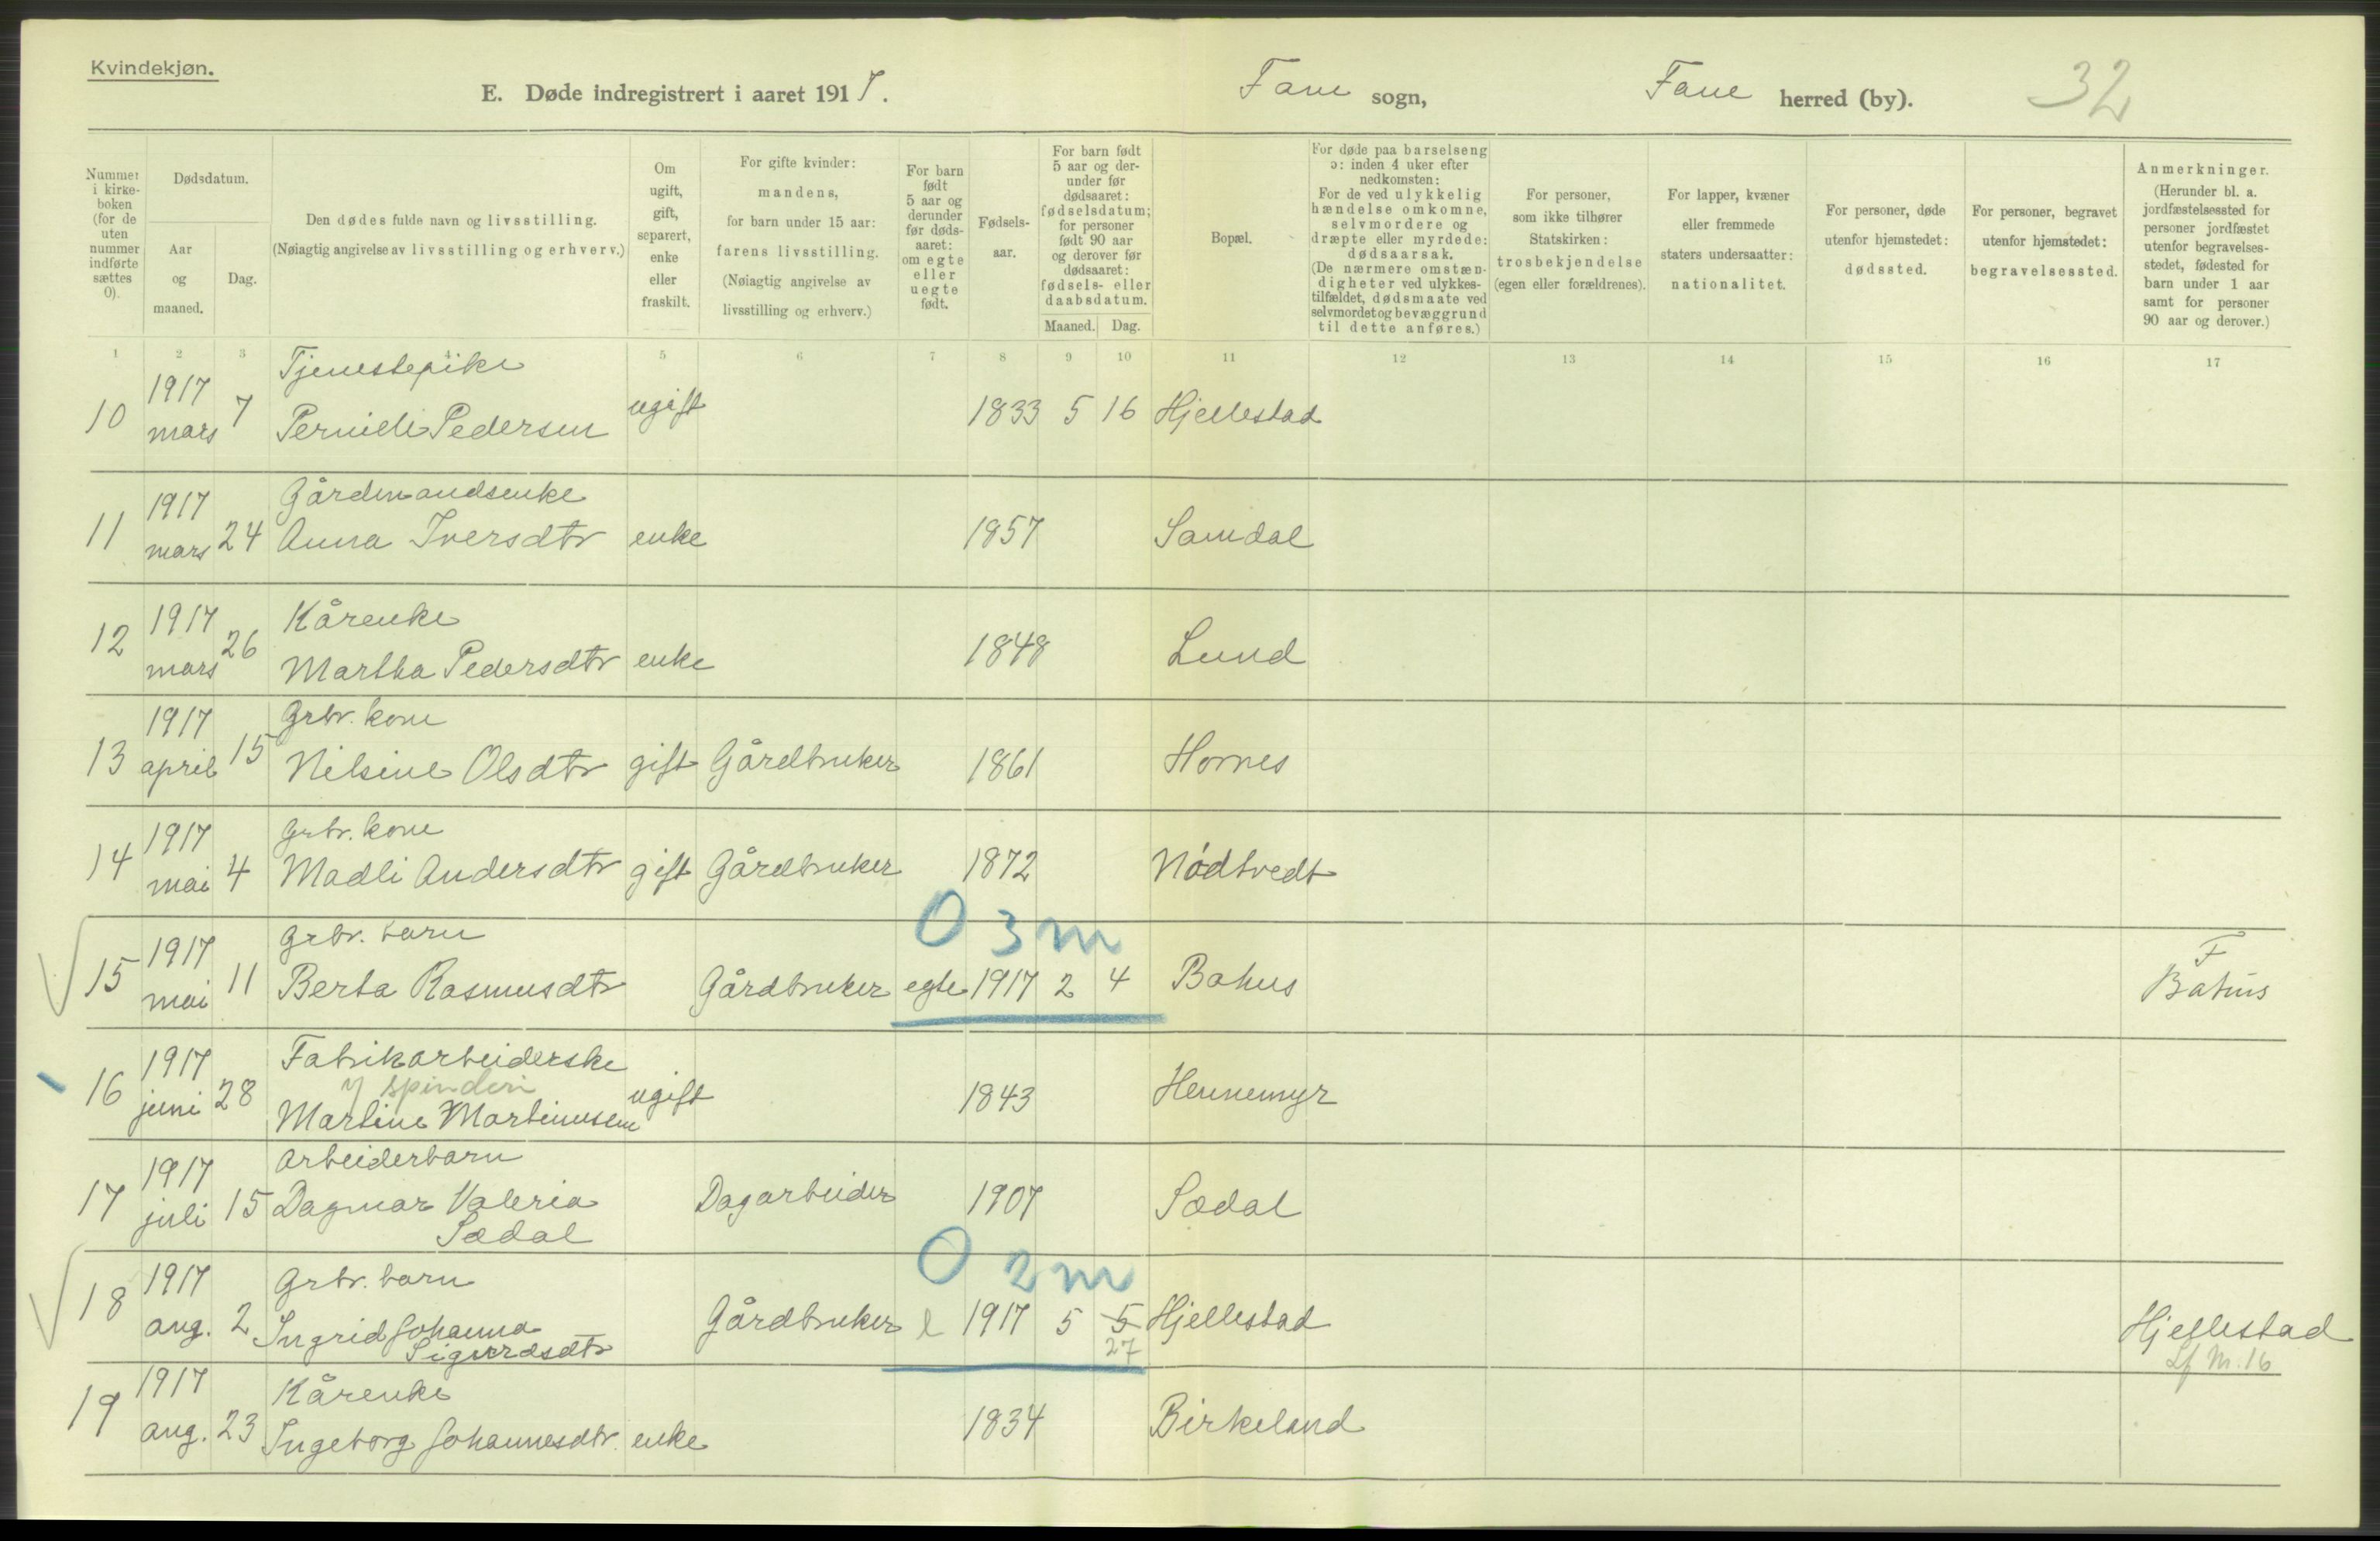 Kvindekjøn.
E. Døde indregistrert i aaret 1917.
Fane sogn,
Fane herred (by).
32
Nummer i kirke-boken (for de uten nummer indførte sættes 0).
Dødsdatum.
Aar og maaned.
Dag.
Den dødes fulde navn og livsstilling.
(Nøiagtig angivelse av livsstilling og erhverv.)
Om ugift, gift, separert, enke eller fraskilt.
For gifte kvinder: mandens, for barn under 15 aar: farens livsstilling. (Nøiagtig angivelse av livsstilling og erhverv.)
For barn født 5 aar og derunder før døds-aaret: om egte eller uegte født.
Fødsels-aar.
For barn født 5 aar og der-under før dødsaaret: fødselsdatum; for personer født 90 aar og derover før dødsaaret: fødsels- eller daabsdatum.
Maaned.
Dag.
Bopæl.
For døde paa barselseng ɔ: inden 4 uker efter nedkomsten: For de ved ulykkelig hændelse omkomne, selvmordere og dræpte eller myrdede: dødsaarsak. (De nærmere omstæn-digheter ved ulykkes-tilfældet, dødsmaate ved selvmordet og bevæggrund til dette anføres.)
For personer, som ikke tilhører Statskirken: trosbekjendelse (egen eller forældrenes).
For lapper, kvæner eller fremmede staters undersaatter: nationalitet.
For personer, døde utenfor hjemstedet: dødssted.
For personer, begravet utenfor hjemstedet: begravelsessted.
Anmerkninger. (Herunder bl. a. jordfæstelsessted for personer jordfæstet utenfor begravelses-stedet, fødested for barn under 1 aar samt for personer 90 aar og derover.)
1 2 3 4 5 6 7 8 9 10 11 12 13 14 15 16 17
1917 Tjenestepike
10 mars 7 Pernille Pedersen ugift 1833 5 16 Hjellestad
1917 Gårdmandsenke
11 mars 24 Anna Iversdtr enke 1857 Samdal
1917 Kårenke
12 mars 26 Martha Pedersdtr enke 1848 Lund
1917 Grbr. kone
13 april 15 Nilsine Olsdtr gift Gårdbruker 1861 Hornes
1917 Grbr. kone
14 mai 4 Madli Andersdtr gift Gårdbruker 1872 Nødtvedt
0 3 m
1917 Grbr. barn F
15 mai 11 Berta Rasmusdtr Gårdbruker egte 1917 2 4 Bahus Bahus
1917 Fabrikarbeiderske
y spinderi
16 juni 28 Martine Martinusen ugift 1843 Hennemyr
1917 Arbeiderbarn
17 juli 15 Dagmar Valeria Dagarbeider 1907 Sædal
Sædal
0 2 m
1917 Grbr. barn
18 aug. 2 Ingrid Johanna Gårdbruker e 1917 5 5 Hjellestad Hjellestad
Sigurdsdtr 27 Lf M. 16
1917 Kårenke
19 aug. 23 Ingeborg Johannesdtr. enke 1834 Birkeland